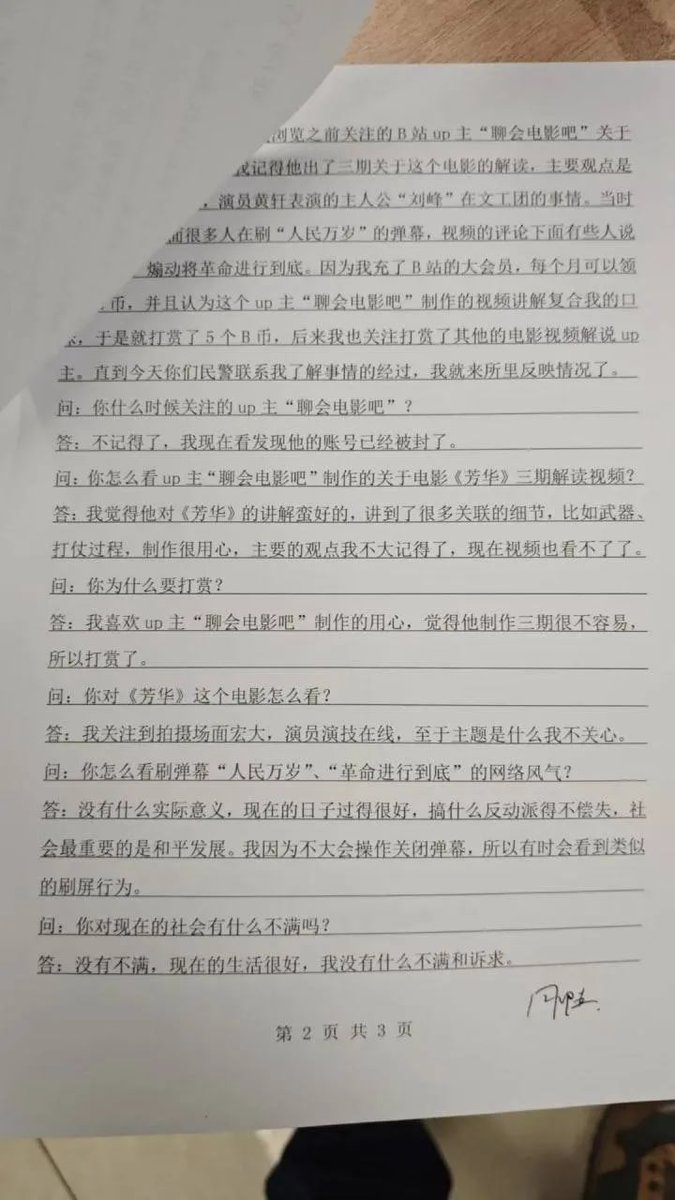 浏览之前关注的B站up主“聊会电影吧”关于
我记得他出了三期关于这个电影的解读，主要观点是
，演员黄轩表演的主人公“刘峰”在文工团的事情。当时
而很多人在刷“人民万岁”的弹幕，视频的评论下面有些人说
煽动将革命进行到底。因为我充了B站的大会员，每个月可以领
币，并且认为这个up主“聊会电影吧”制作的视频讲解复合我的口
，于是就打赏了5个B币，后来我也关注打赏了其他的电影视频解说up
主。直到今天你们民警联系我了解事情的经过，我就来所里反映情况了。
问：你什么时候关注的up主“聊会电影吧”？
答：不记得了，我现在看发现他的账号已经被封了。
问：你怎么看up主“聊会电影吧”制作的关于电影《芳华》三期解读视频？
答：我觉得他对《芳华》的讲解蛮好的，讲到了很多关联的细节，比如武器、
打仗过程，制作很用心，主要的观点我不大记得了，现在视频也看不了了。
问：你为什么要打赏？
答：我喜欢up主“聊会电影吧”制作的用心，觉得他制作三期很不容易，
所以打赏了。
问：你对《芳华》这个电影怎么看？
答：我关注到拍摄场面宏大，演员演技在线，至于主题是什么我不关心。
问：你怎么看刷弹幕“人民万岁”、“革命进行到底”的网络风气？
答：没有什么实际意义，现在的日子过得很好，搞什么反动派得不偿失，社
会最重要的是和平发展。我因为不大会操作关闭弹幕，所以有时会看到类似
的刷屏行为。
问：你对现在的社会有什么不满吗？
答：没有不满，现在的生活很好，我没有什么不满和诉求。
第 2 页 共 3 页